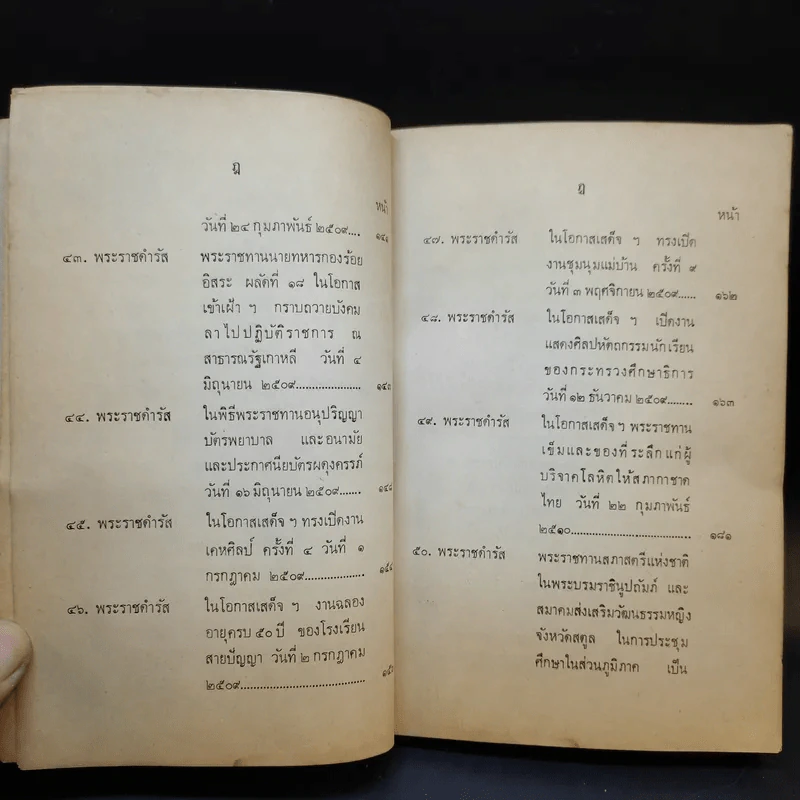 ฎ
หน้า
วันที่ ๒๔ กุมภาพันธ์ ๒๕๐๙.... ๑๔๑
๔๓. พระราชดำรัส พระราชทานนายทหารกองร้อย
อิสระ ผลัดที่ ๑๘ ในโอกาส
เข้าเฝ้า ฯ กราบถวายบังคม
ลาไปปฏิบัติราชการ ณ
สาธารณรัฐเกาหลี วันที่ ๔
มิถุนายน ๒๕๐๙..................... ๑๔๓
๔๔. พระราชดำรัส ในพิธีพระราชทานอนุปริญญา
บัตรพยาบาล และอนามัย
และประกาศนียบัตรผดุงครรภ์
วันที่ ๑๖ มิถุนายน ๒๕๐๙....... ๑๔๘
๔๕. พระราชดำรัส ในโอกาสเสด็จ ฯ ทรงเปิดงาน
เคหศิลป์ ครั้งที่ ๔ วันที่ ๑
กรกฎาคม ๒๕๐๙...................
๔๖. พระราชดำรัส ในโอกาสเสด็จ ฯ งานฉลอง
อายุครบ ๕๐ ปี ของโรงเรียน
สายปัญญา วันที่ ๒ กรกฎาคม
๒๕๐๙........................................
หน้า
๔๗. พระราชดำรัส ในโอกาสเสด็จ ฯ ทรงเปิด
งานชุมนุมแม่บ้าน ครั้งที่ ๙
วันที่ ๓ พฤศจิกายน ๒๕๐๙...... ๑๖๒
๔๘. พระราชดำรัส ในโอกาสเสด็จ ฯ เปิดงาน
แสดงศิลปหัตถกรรมนักเรียน
ของกระทรวงศึกษาธิการ
วันที่ ๑๒ ธันวาคม ๒๕๐๙........ ๑๖๓
๔๙. พระราชดำรัส ในโอกาสเสด็จ ฯ พระราชทาน
เข็มและของที่ระลึกแก่ผู้
บริจาคโลหิตให้สภากาชาด
ไทย วันที่ ๒๒ กุมภาพันธ์
๒๕๑๐...................................... ๑๘๑
๕๐. พระราชดำรัส พระราชทานสภาสตรีแห่งชาติ
ในพระบรมราชินูปถัมภ์ และ
สมาคมส่งเสริมวัฒนธรรมหญิง
จังหวัดสตูล ในการประชุม
ศึกษาในส่วนภูมิภาค เป็น